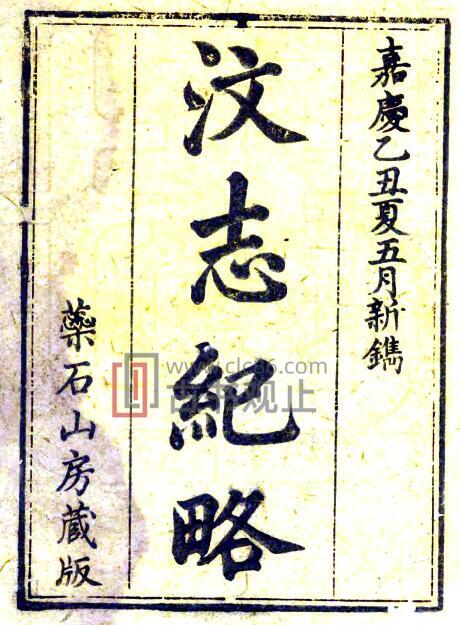 嘉慶乙丑夏五月新鐫
汶志紀略
藥石山房藏版
www.clc86.com